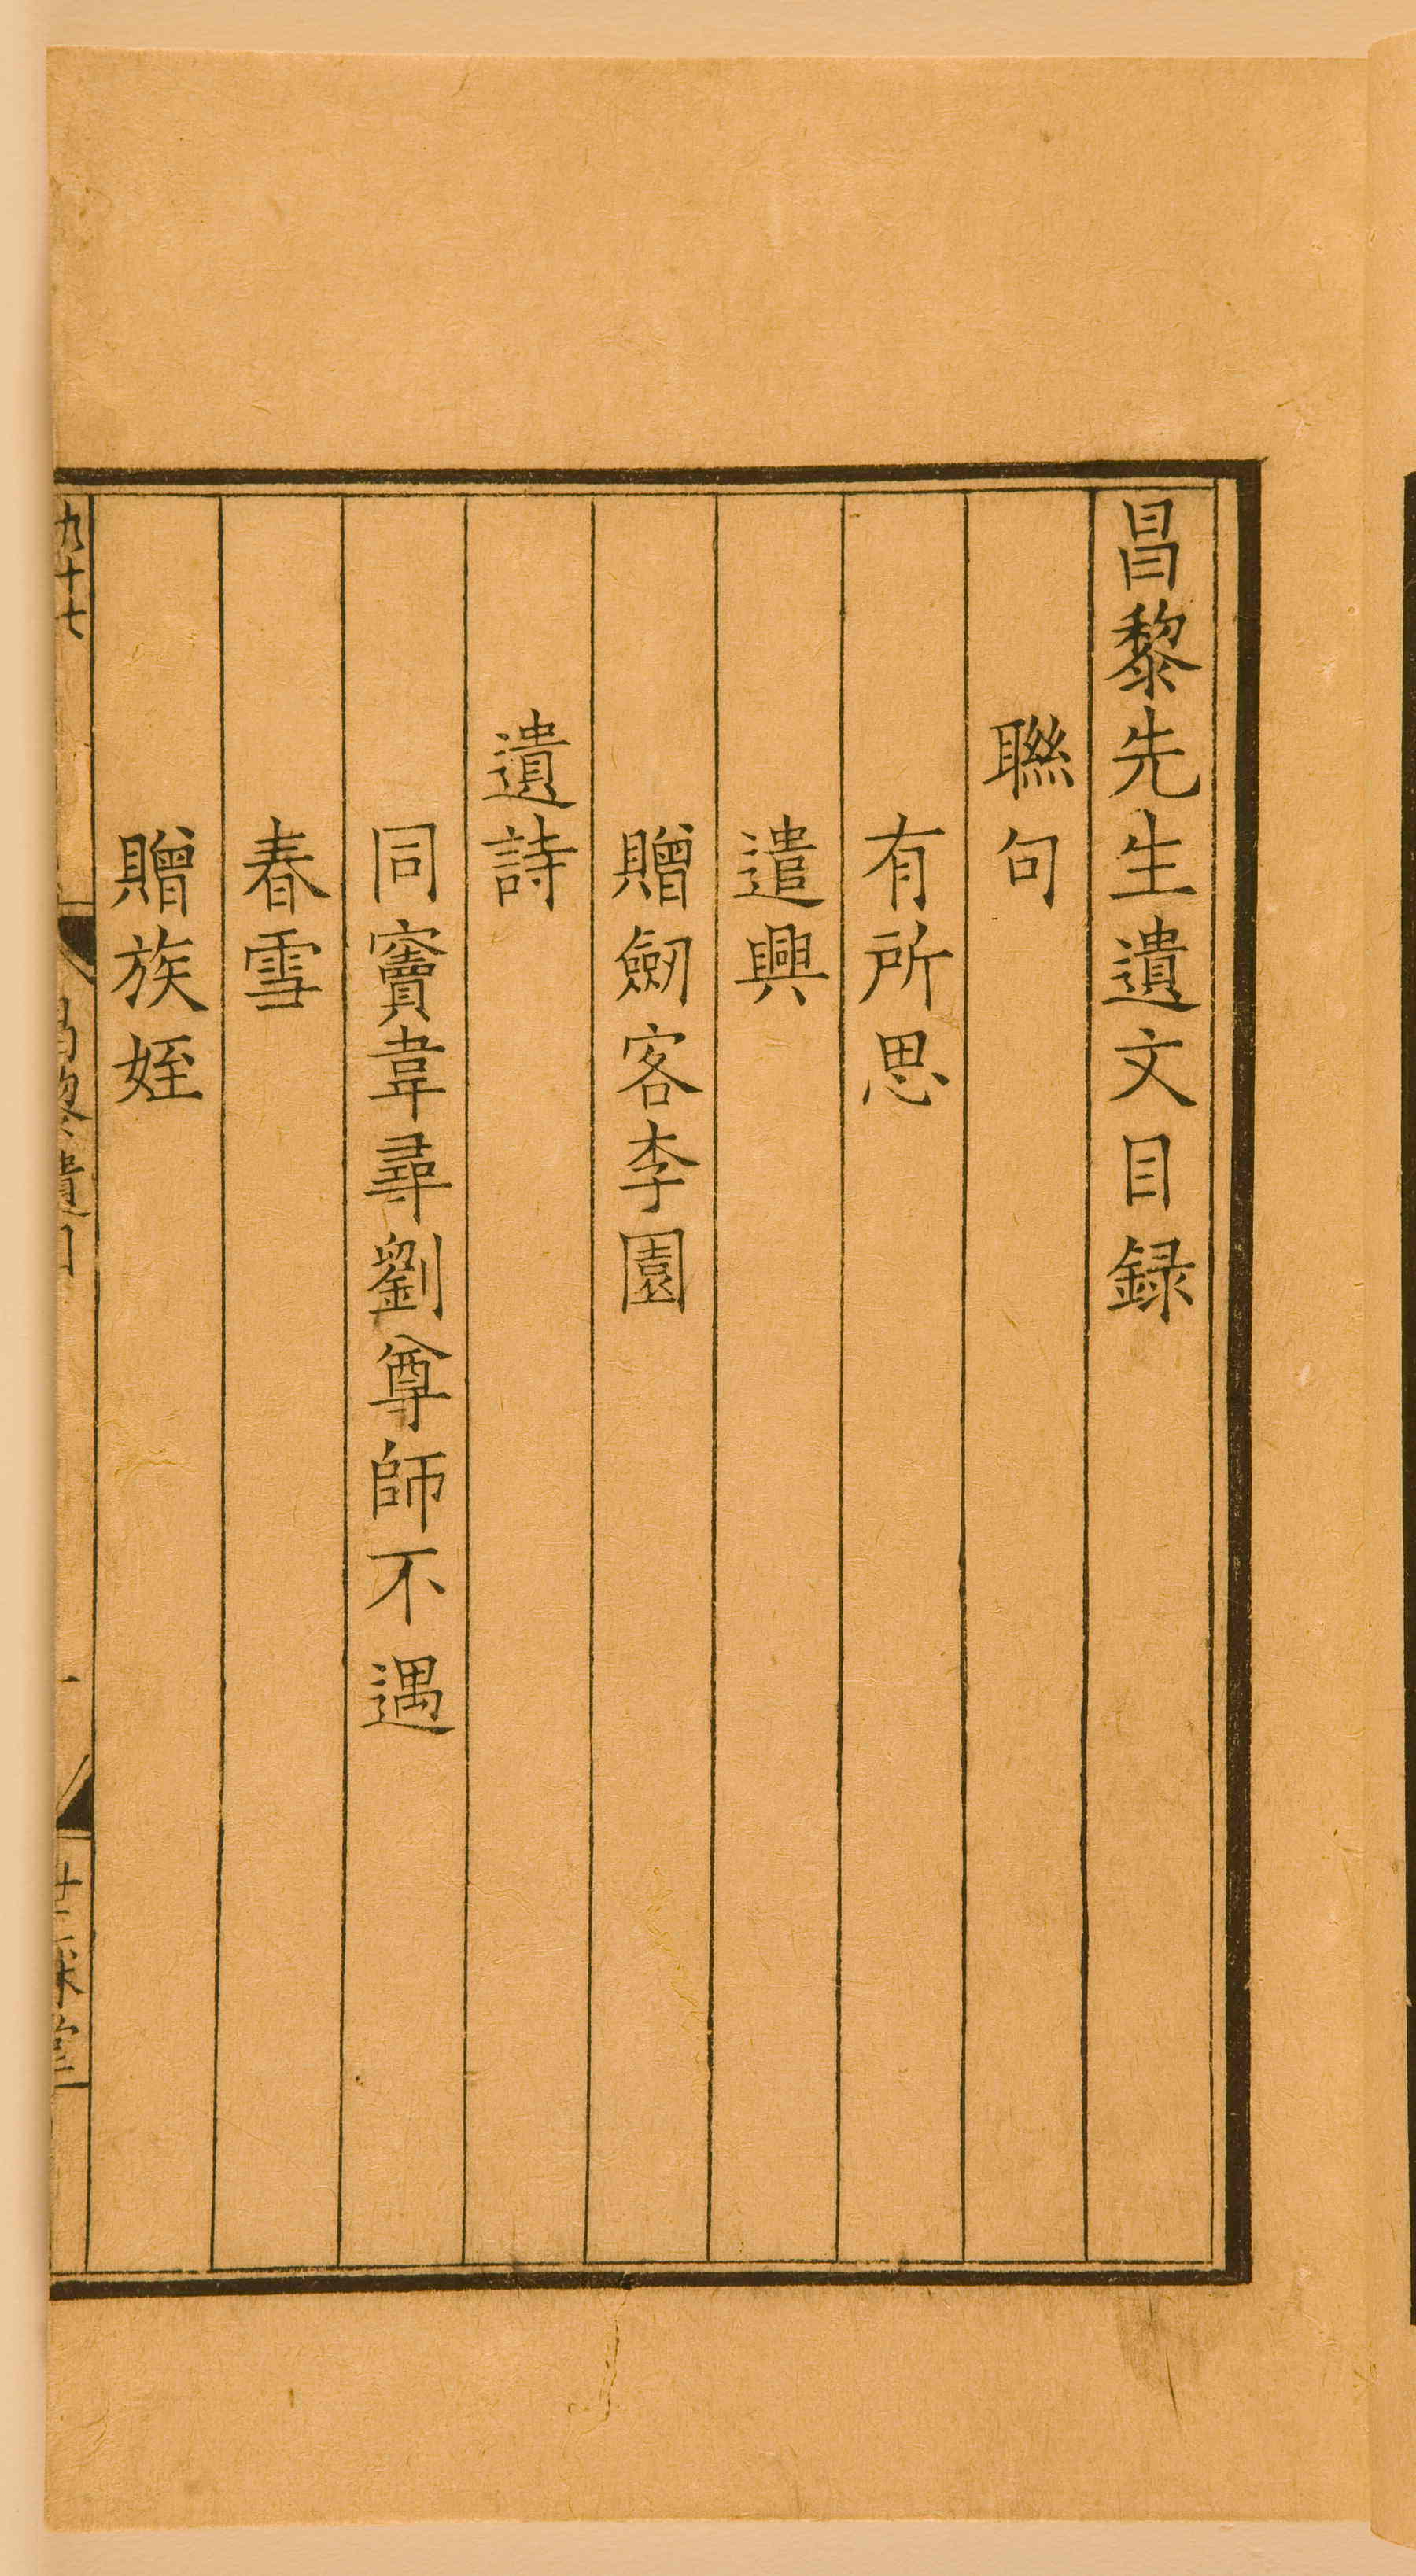 昌黎先生遺文目録
聯句
有所思
遣興
贈劒客李園
遺詩
同竇韋尋劉尊師不遇
春雪
贈族姪
九十七
一